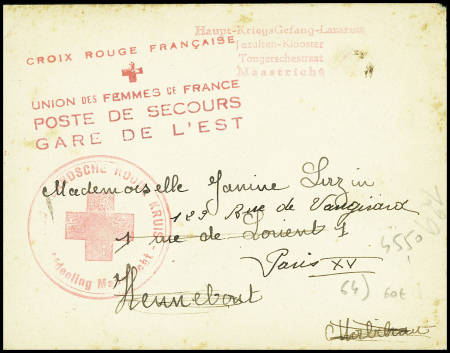 CROIX ROUGE FRANÇAISE
UNION DES FEMMES DE FRANCE
POSTE DE SECOURS
GARE DE L'EST
Haupt-KriegsGefang-Lazarett
Jezuïten-Klooster
Tongerschestraat
Maastricht
NDSCHE ROODE KRUIS
Afdeeling Maastricht
Mademoiselle Janine
122 Rue de Vaugirard
1 rue de Lorient 1
Paris XV
Hennebont
Morbihan
4550
64)
60€